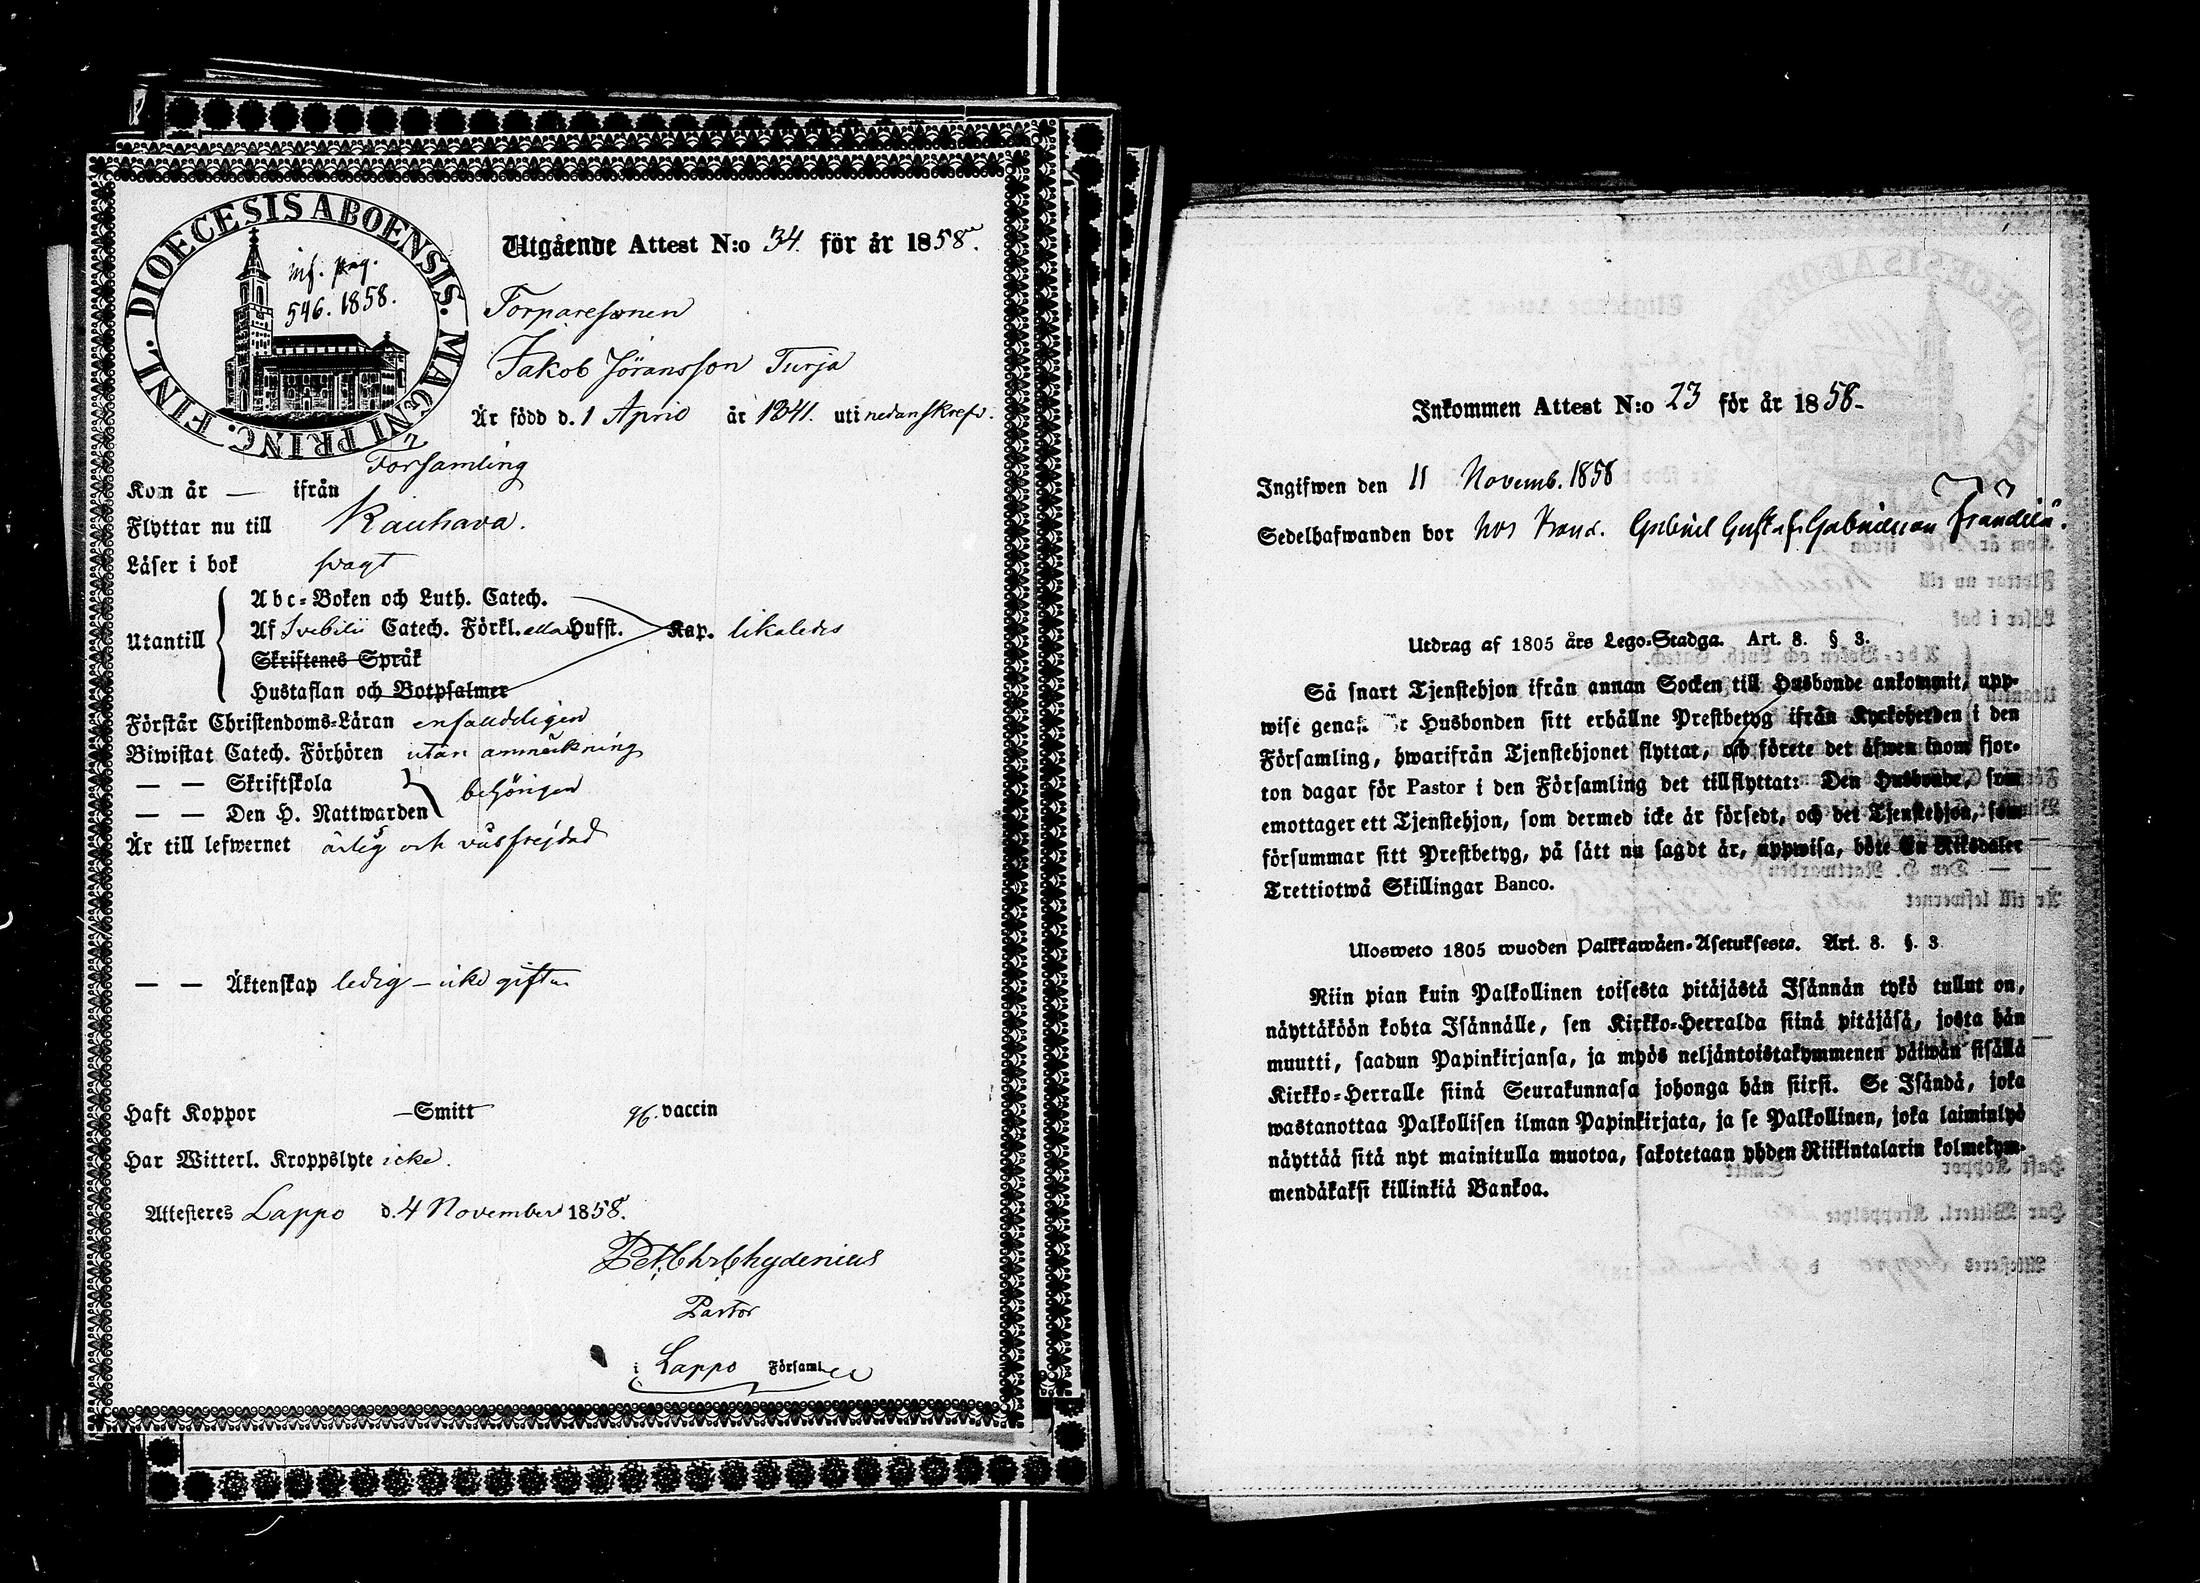 DIOECESIS ABOENSIS. MAGNI PRINC. FINL.
inf. pag.
546. 1858.
Utgående Attest N:o 34. för år 1858.
Torparesonen
Jakob Jöransson Turja
Är född d. 1 April år 1841. uti nedanskrefv.
Församling
Kom år — ifrån
Flyttar nu till Kauhava.
Läser i bok svagt
Utantill
Abc-Boken och Luth. Catech.
Af Svebilii Catech. Förkl. Hufst. Kap. likaledes
Skriftenes Språk
Hustaflan och Botpsalmer
Förstår Christendoms-Läran enfaldeligen
Biwistat Catech. Förhören utan anmärkning
— — Skriftskola
— — Den H. Nattwarden behörigen
Är till lefwernet ärlig och välfrejdad
— — Äktenskap ledig – icke gift
Haft Koppor — Smitt vaccin
Har Witterl. Kroppslyte icke.
Attesteres Lappo d. 4 November 1858.
Pet. Chr. Chydenius
Pastor
i Lappo Församl.
Inkommen Attest N:o 23 för år 1858.
Ingifwen den 11 Novemb. 1858
Sedelhafwanden bor hos Gabriel Gust. f. Gabrielsson
Utdrag af 1805 års Lego-Stadga. Art. 8. § 3.
Så snart Tjenstehjon ifrån annan Socken till Husbonde ankommit, upp-
wise genast för Husbonden sitt erhållne Prestbetyg ifrån Kyrkoherden i den
Församling, hwarifrån Tjenstehjonet flyttat, och förete det äfwen inom fjor-
ton dagar för Pastor i den Församling det tillflyttat: Den Husbonde, som
emottager ett Tjenstehjon, som dermed icke är försedt, och det Tjenstehjon, som
försummar sitt Prestbetyg, på sätt nu sagdt är, uppwisa, böte En Riksdaler
Trettiotwå Skillingar Banco.
Ulosweto 1805 wuoden Palkkawäen-Asetuksesta. Art. 8. §. 3
Niin pian kuin Palkollinen toisesta pitäjästä Isännän tykö tullut on,
näyttäköön kohta Isännälle, sen Kirkko-Herralda siinä pitäjäsä, josta hän
muutti, saadun Papinkirjansa, ja myös neljäntoistakymmenen päiwän sisällä
Kirkko-Herralle siinä Seurakunnasa johonga hän siirsi. Se Isändä, joka
wastanottaa Palkollisen ilman Papinkirjata, ja se Palkollinen, joka laiminlyö
näyttää sitä nyt mainitulla muotoa, sakotetaan yhden Riikintalarin kolmekym-
mendäkaksi killinkiä Bankoa.